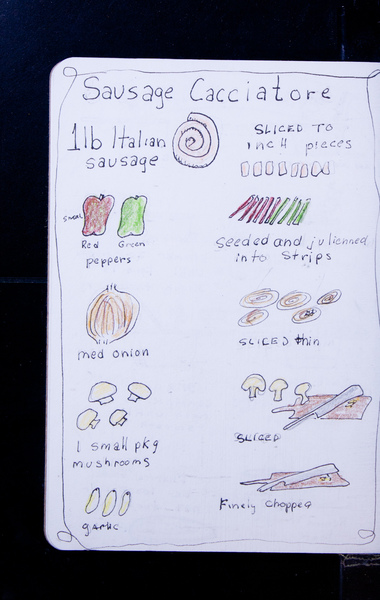 Sausage Cacciatore
1lb Italian
sausage
SLICED TO
inch pieces
Small
Red Green
peppers
Seeded and julienned
into strips
med onion
SLICED thin
1 small pkg
mushrooms
SLICED
garlic
Finely chopped